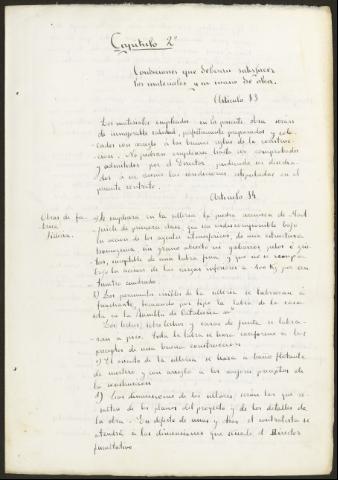 Capitulo 2º
Condiciones que deberán satisfacer
los materiales y su mano de obra.
Articulo 13
Los materiales empleados en la presente obra serán
de inmejorable calidad, perfectamente preparados y colo-
cados con arreglo à las buenas reglas de la construc-
cion. No podrán emplearse hasta ser comprobados
y admitidos por el Director pudiendo ser desecha-
dos si no reunen las condiciones estipuladas en el
presente contrato.
Articulo 14
Obras de fa-
brica
Silleria.
a) Se empleará en la silleria la piedra arenisca de Mont
juich de primera clase, que sea indescomponible bajo
la accion de los agentes atmosféricos, de una estructura
homogenea, sin grano abierto ni gabarros, pelos ó grie-
tas, susceptible de una labra fina y que no se rompa
bajo la accion de las cargas inferiores à 400 Kg por cen-
timetro cuadrado.
b) Los paramentos visibles de la silleria se labrarán à
tomando por tipo la labra de la casa
en la Rambla de Cataluña nº
Los lechos, sobrelechos y caras de junta se labra-
rán a pico. Toda la labra se hará conforme à los
preceptos de una buena construccion
c) El asiento de la silleria se hará à baño flotante
de mortero y con arreglo à los mejores preceptos de
la construccion
d) Las dimensiones de los sillares, serán las que re-
sulten de los planos del proyecto y de los detalles de
la obra. En defecto de unos y otros el contratista se
atendrá à las dimensiones que señale el Director
facultativo